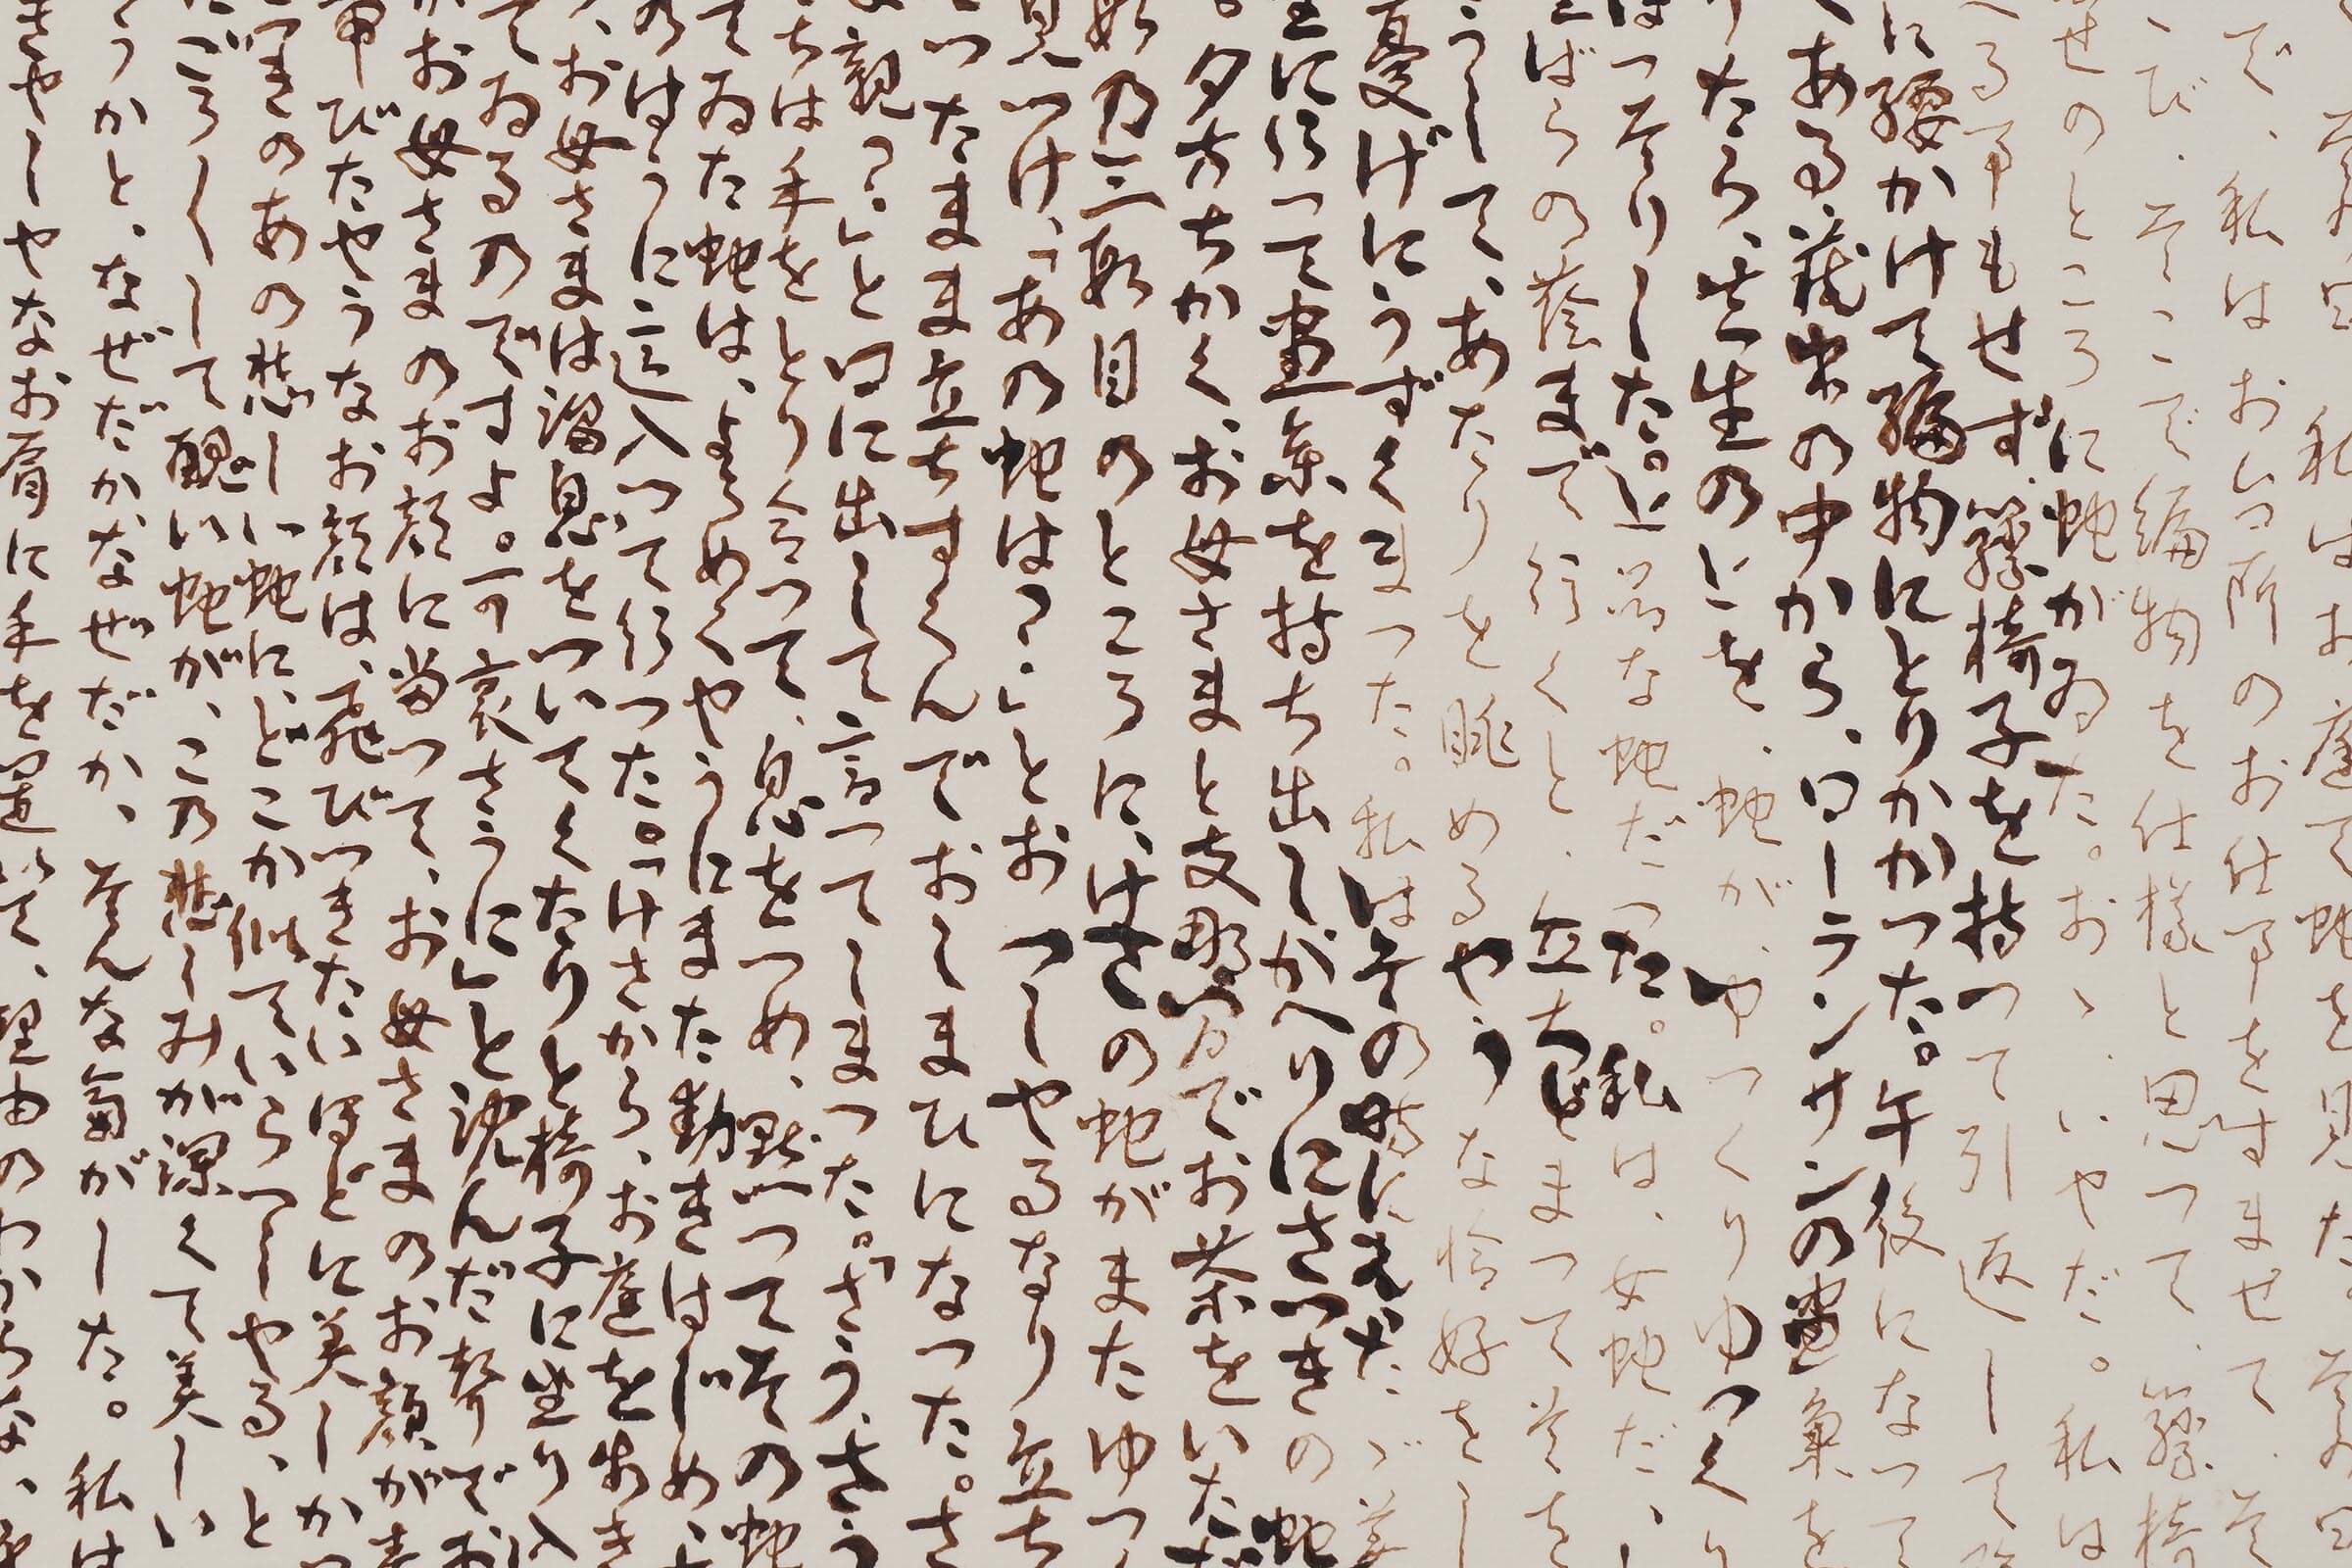 その日、私はお庭で蛇を見た。その日
で、私はお台所のお仕事をすませて、そ
こび、そこで編物を仕様と思つて、籐椅
せのところに蛇がゐた。おゝ、いやだ。私は
へる事もせず、籐椅子を持つて引返して
に腰かけて編物にとりかかつた。午後になつて
ある藏書の中から、ローランサンの畫集を
りたら、芝生の上を、蛇が、ゆつくりゆつくり
ほつそりした、上品な蛇だつた。私は、女蛇だ、
ばらの蔭まで行くと、立ちどまつて首を
うして、あたりを眺めるやうな恰好をし
憂げにうずくまつた。私はその時にも、ただ美
に行つて畫集を持ち出し、かへりにさつきの蛇
。夕方ちかく、お母さまと支那間でお茶をいただ
段の三段目のところに、けさの蛇がまたゆつ
見つけ、「あの蛇は?」とおつしやるなり立ち
つたまま立ちすくんでおしまひになつた。さ
親?」と口に出して、言つてしまつた。「さう、さう
ちは手をとり合つて、息をつめ、默つてその蛇
てゐた蛇は、よろめくやうにまた動きはじめ、
のはうに這入つて行つた。「けさから、お庭を歩き
、お母さまは溜息をついてくたりと椅子に坐り込
てゐるのですよ。可哀さうに」と沈んだ聲でお
お母さまのお顔に当つて、お母さまのお顔が青
帯びたやうなお顔は、飛びつきたいほどに美しかつ
つきのあの悲しい蛇に、どこか似ていらつしやる、と
ごろ〳〵して醜い蛇が、この悲しみが深くて美しい
うかと、なぜだか、なぜだか、そんな氣がした。私は
きやしやなお肩に手を置いて、理由のわからない